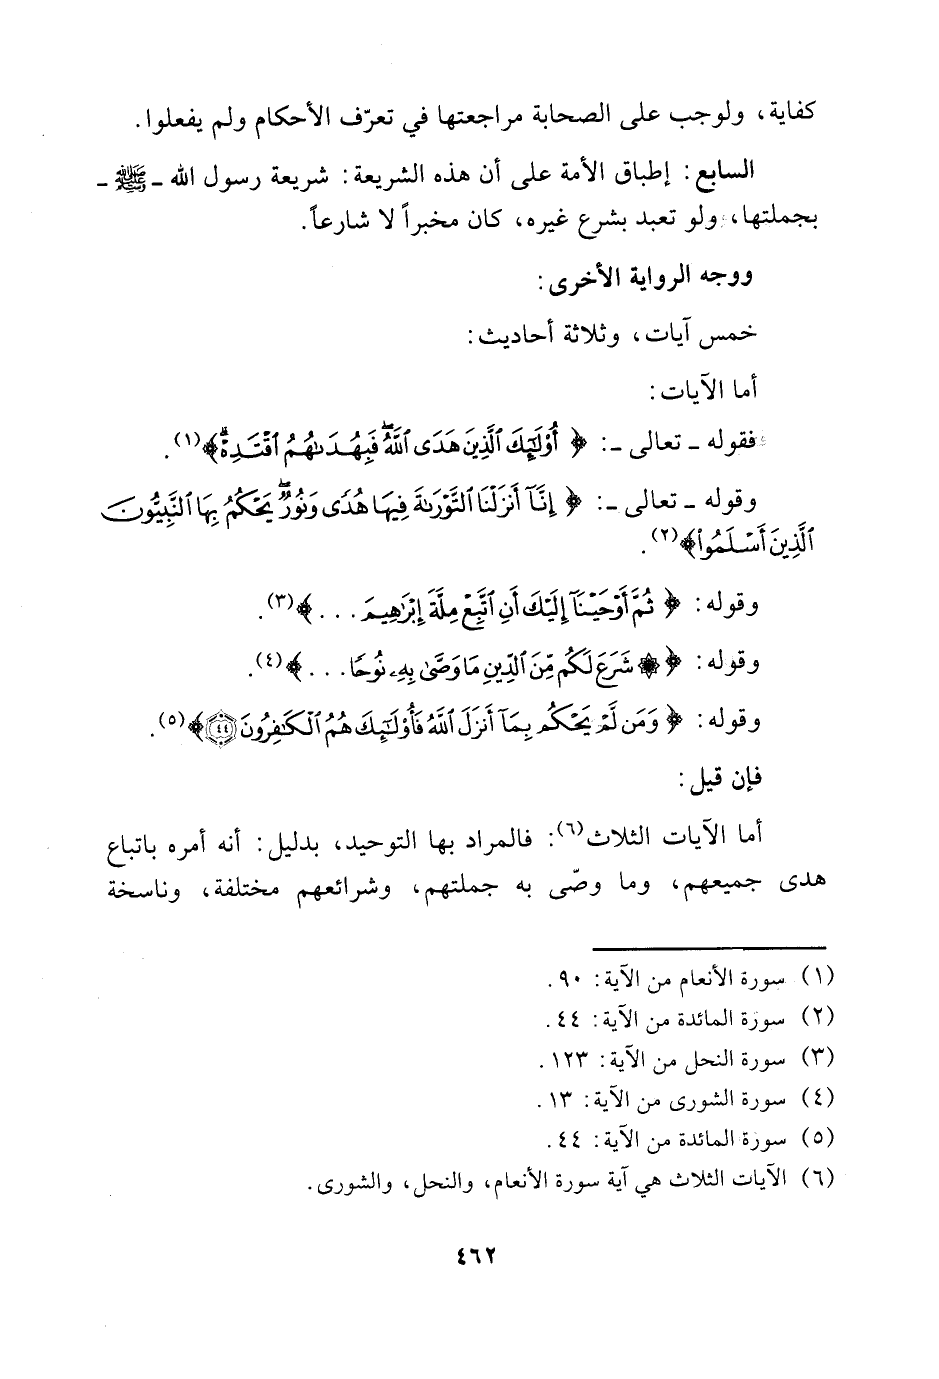 كفاية، ولوجب على الصحابة مراجعتها في تعرّف الأحكام ولم يفعلوا.
السابع: إطباق الأمة على أن هذه الشريعة: شريعة رسول الله ـ ﷺ ـ
بجملتها، ولو تعبد بشرع غيره، كان مخبراً لا شارعاً.
ووجه الرواية الأخرى:
خمس آيات، وثلاثة أحاديث:
أما الآيات:
فقوله ـ تعالى ـ: ﴿أُوْلَٰٓئِكَ ٱلَّذِينَ هَدَى ٱللَّهُۖ فَبِهُدَىٰهُمُ ٱقۡتَدِهۡۗ﴾(١).
وقوله ـ تعالى ـ: ﴿إِنَّآ أَنزَلۡنَا ٱلتَّوۡرَىٰةَ فِيهَا هُدٗى وَنُورٞۚ يَحۡكُمُ بِهَا ٱلنَّبِيُّونَ
ٱلَّذِينَ أَسۡلَمُواْ﴾(٢).
وقوله: ﴿ثُمَّ أَوۡحَيۡنَآ إِلَيۡكَ أَنِ ٱتَّبِعۡ مِلَّةَ إِبۡرَٰهِيمَ . . .﴾(٣).
وقوله: ﴿۞ شَرَعَ لَكُم مِّنَ ٱلدِّينِ مَا وَصَّىٰ بِهِۦ نُوحٗا . . .﴾(٤).
وقوله: ﴿وَمَن لَّمۡ يَحۡكُم بِمَآ أَنزَلَ ٱللَّهُ فَأُوْلَٰٓئِكَ هُمُ ٱلۡكَٰفِرُونَ ٤٤﴾(٥).
فإن قيل:
أما الآيات الثلاث(٦): فالمراد بها التوحيد، بدليل: أنه أمره باتباع
هدى جميعهم، وما وصّى به جملتهم، وشرائعهم مختلفة، وناسخة
(١) سورة الأنعام من الآية: ٩٠.
(٢) سورة المائدة من الآية: ٤٤.
(٣) سورة النحل من الآية: ١٢٣.
(٤) سورة الشورى من الآية: ١٣.
(٥) سورة المائدة من الآية: ٤٤.
(٦) الآيات الثلاث هي آية سورة الأنعام، والنحل، والشورى.
٤٦٢